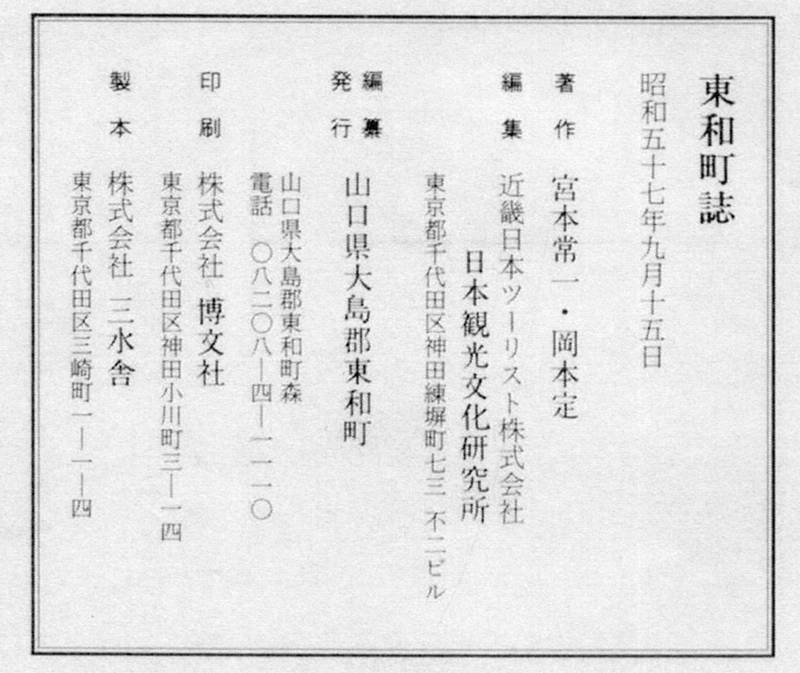 東和町誌
昭和五十七年九月十五日
著作 宮本常一・岡本定
編集 近畿日本ツーリスト株式会社
日本観光文化研究所
東京都千代田区神田練塀町七三 不二ビル
編纂
発行 山口県大島郡東和町
山口県大島郡東和町森
電話 〇八二〇八―四―一一一〇
印刷 株式会社 博文社
東京都千代田区神田小川町三―一四
製本 株式会社 三水舎
東京都千代田区三崎町一―一―四